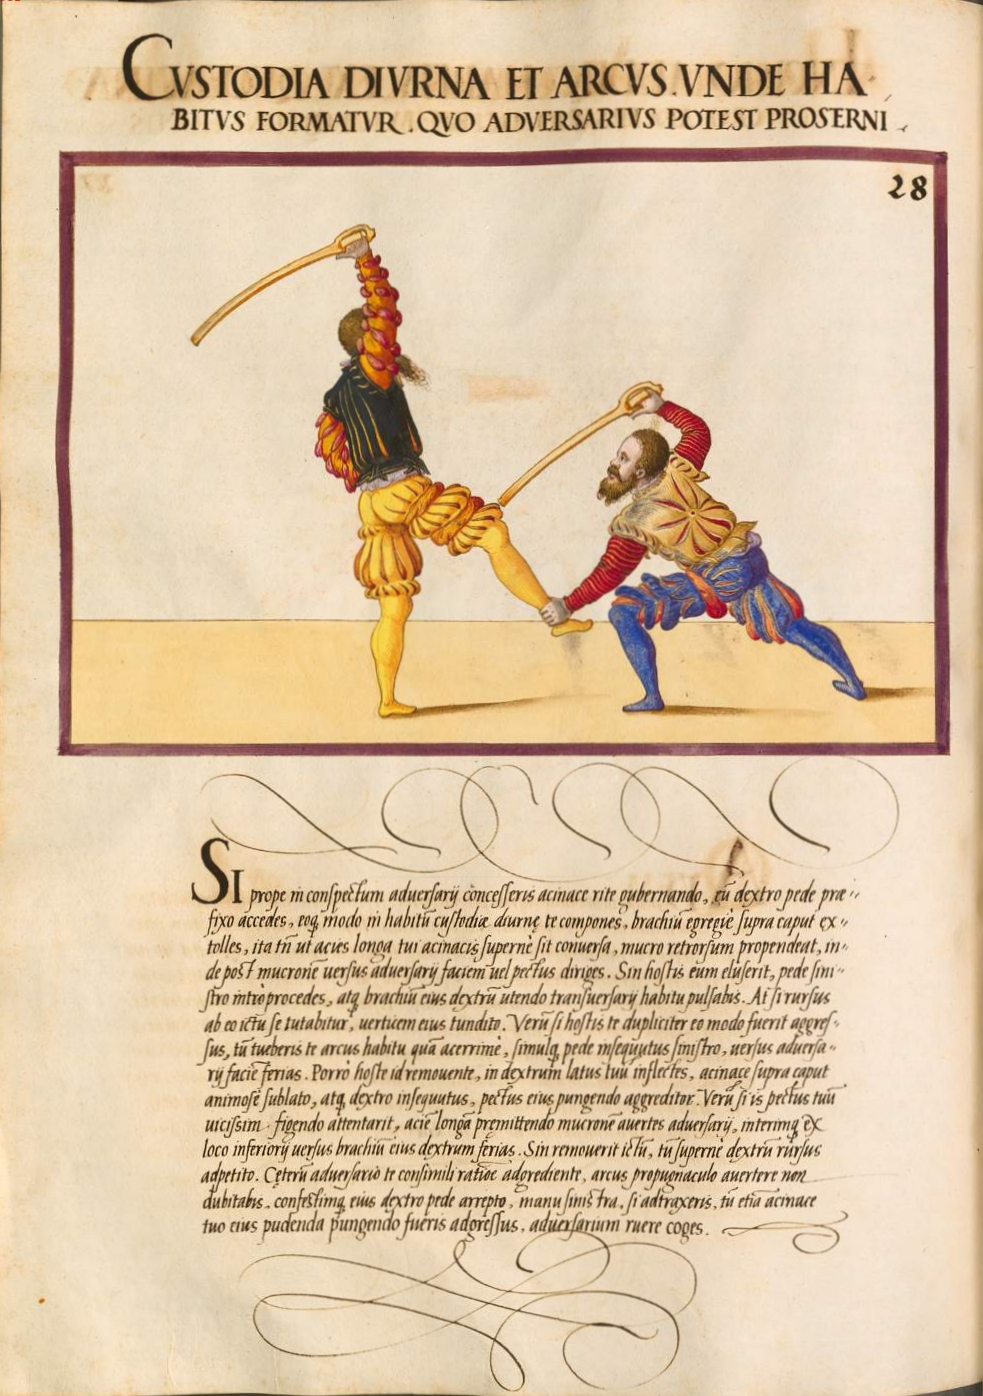 CVSTODIA DIVRNA ET ARCVS. VNDE HA
BITVS FORMATVR. QVO ADVERSARIVS POTEST PROSTERNI
28
SI prope in conspectum adversarij concesseris acinace rite gubernando, tũ dextro pede præ-
fixo accedes, eoq, modo in habitũ custodiæ diurnę te compones, brachiũ egregiè supra caput ex-
tolles, ita tñ ut acies longa tui acinacis supernè sit conuersa, mucro retrorsum propendeat, in-
de post mucronẽ uersus adversarij faciem uel pectus diriges. Sin hostis eum eluserit, pede sini-
stro intrò procedes, atq, brachiũ eius dextrũ utendo transuersarij habitu pulsabis. At si rursus
ab eo ictu se tutabitur, uerticem eius tundito. Verũ si hostis te dupliciter eo modo fuerit aggres-
sus, tũ tueberis te arcus habitu quã acerrimè, simulq, pede insequutus sinistro, uersus aduersa-
rij faciẽ ferias. Porro hoste id remouente, in dextrum latus tuũ inflectes, acinace supra caput
animosè sublato, atq, dextro insequutus, pectus eius pungendo aggreditor. Verũ si is pectus tuũ
uicissim figendo attentarit, aciẽ longã pręmittendo mucronẽ auertes adversarij, interimq, ex
loco inferiori uersus brachiũ eius dextrum ferias. Sin remouerit ictũ, tũ supernè dextrũ rursus
adpetito. Cęterũ adversario te consimili ratiõe adgrediente, arcus propugnaculo auertere non
dubitabis, confestimq, eius dextro pede arrepto, manu sinistra, si adtraxeris, tũ etiã acinace
tuo eius pudenda pungendo fueris adgressus, adversarium ruere coges.